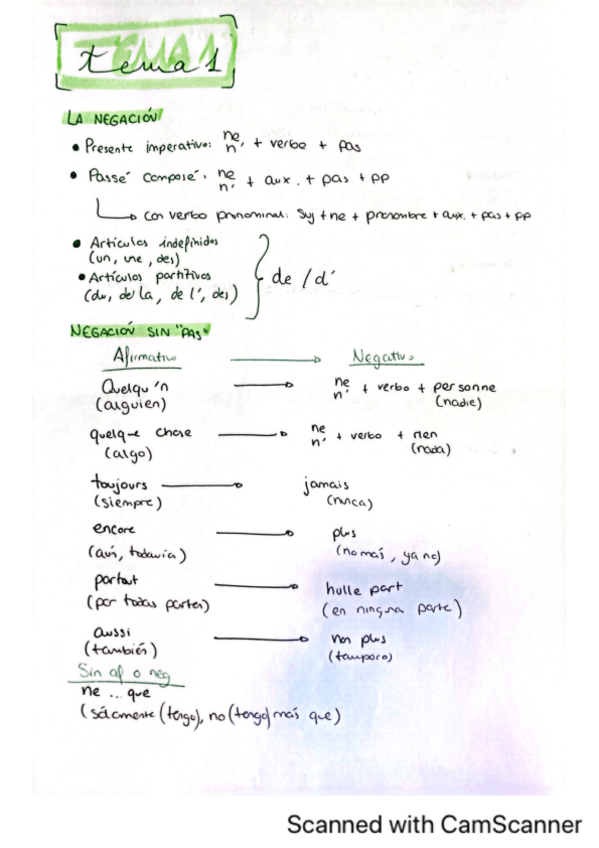 TEMA 1
tema 1
LA NEGACIÓN
• Presente imperativo: ne, n' + verbe + pas
• Passé composé: ne n' + aux. + pas + pp
con verbo pronominal: Suj + ne + pronombre + aux. + pas + pp
• Artículos indefinidos
(un, une, des)
• Artículos partitivos
(du, de la, de l', des)
de / d'
NEGACIÓN SIN "PAS"
Afirmativo → Negativo
Quelqu'n → ne n' + verbo + personne
(alguien) (nadie)
quelque chose → ne n' + verbo + rien
(algo) (nada)
toujours → jamais
(siempre) (nunca)
encore → plus
(aún, todavía) (no más, ya no)
partout → nulle part
(por todas partes) (en ninguna parte)
aussi → non plus
(también) (tampoco)
Sin af o neg
ne ... que
(sólamente (tengo), no (tengo) más que)
Scanned with CamScanner